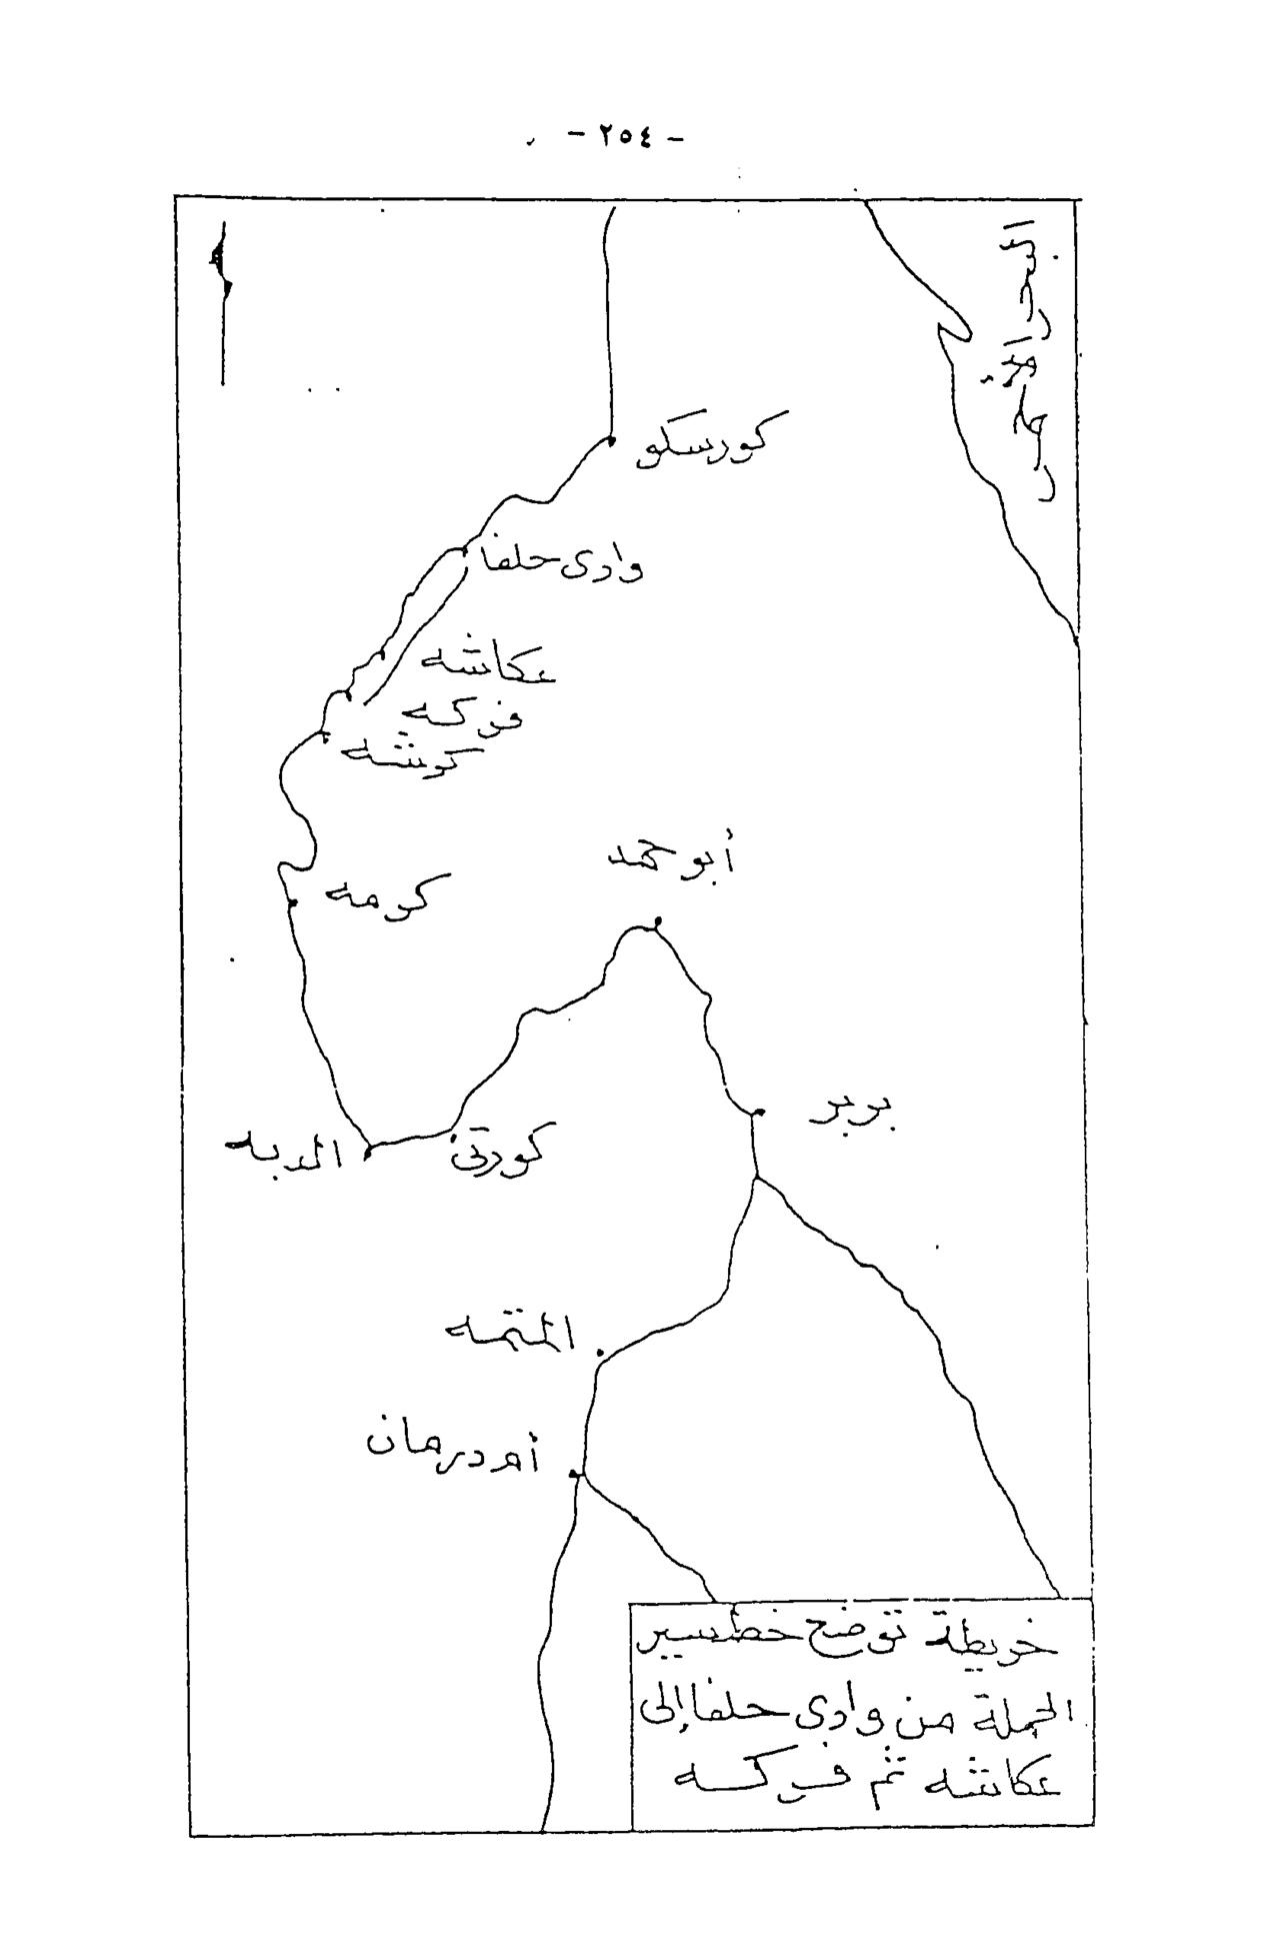 - ٢٥٤ -
البحر الأحمر
كورسكو
وادى حلفا
عكاشه
فركه
كوشه
أبو حمد
كرمه
بربر
كورتى
الدبه
المتمه
أم درمان
خريطة توضح خط سير
الحملة من وادى حلفا إلى
عكاشه ثم فركه